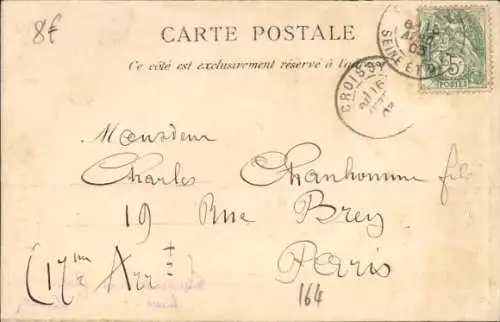 8f
CARTE POSTALE
Ce côté est exclusivement réservé à l'a
SEINE ET
CROISSY
16
5
POSTES
Monsieur
Charles Chanhomme fils
19 Rue Brey
(17me Arrt)
Paris
164